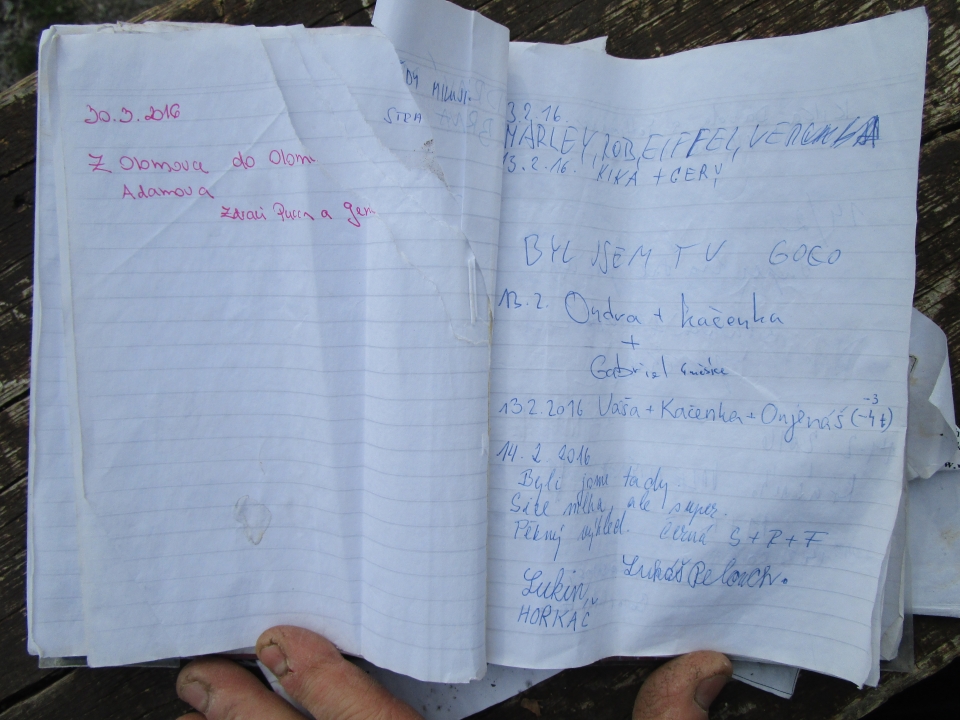 30.3.2016
Z Olomouce do Olom
Adamova
Zdraví Pucca a Gem
MILUJI.
3.2.16.
MARLEY, BOB, EIFFEL,
13.2.16. KIKA + GERY
BYL JSEM TU GOGO
13.2. Ondra + Kačenka
+
Gabriel
13.2.2016 Váša + Kačenka + Onjenáš (-4t)
-3
14.2.2016
Byli jsme tady.
Sice mlha, ale super.
Pěkný výhled. Černá S+P+F
Lukin, Lukáš
HORKAČ